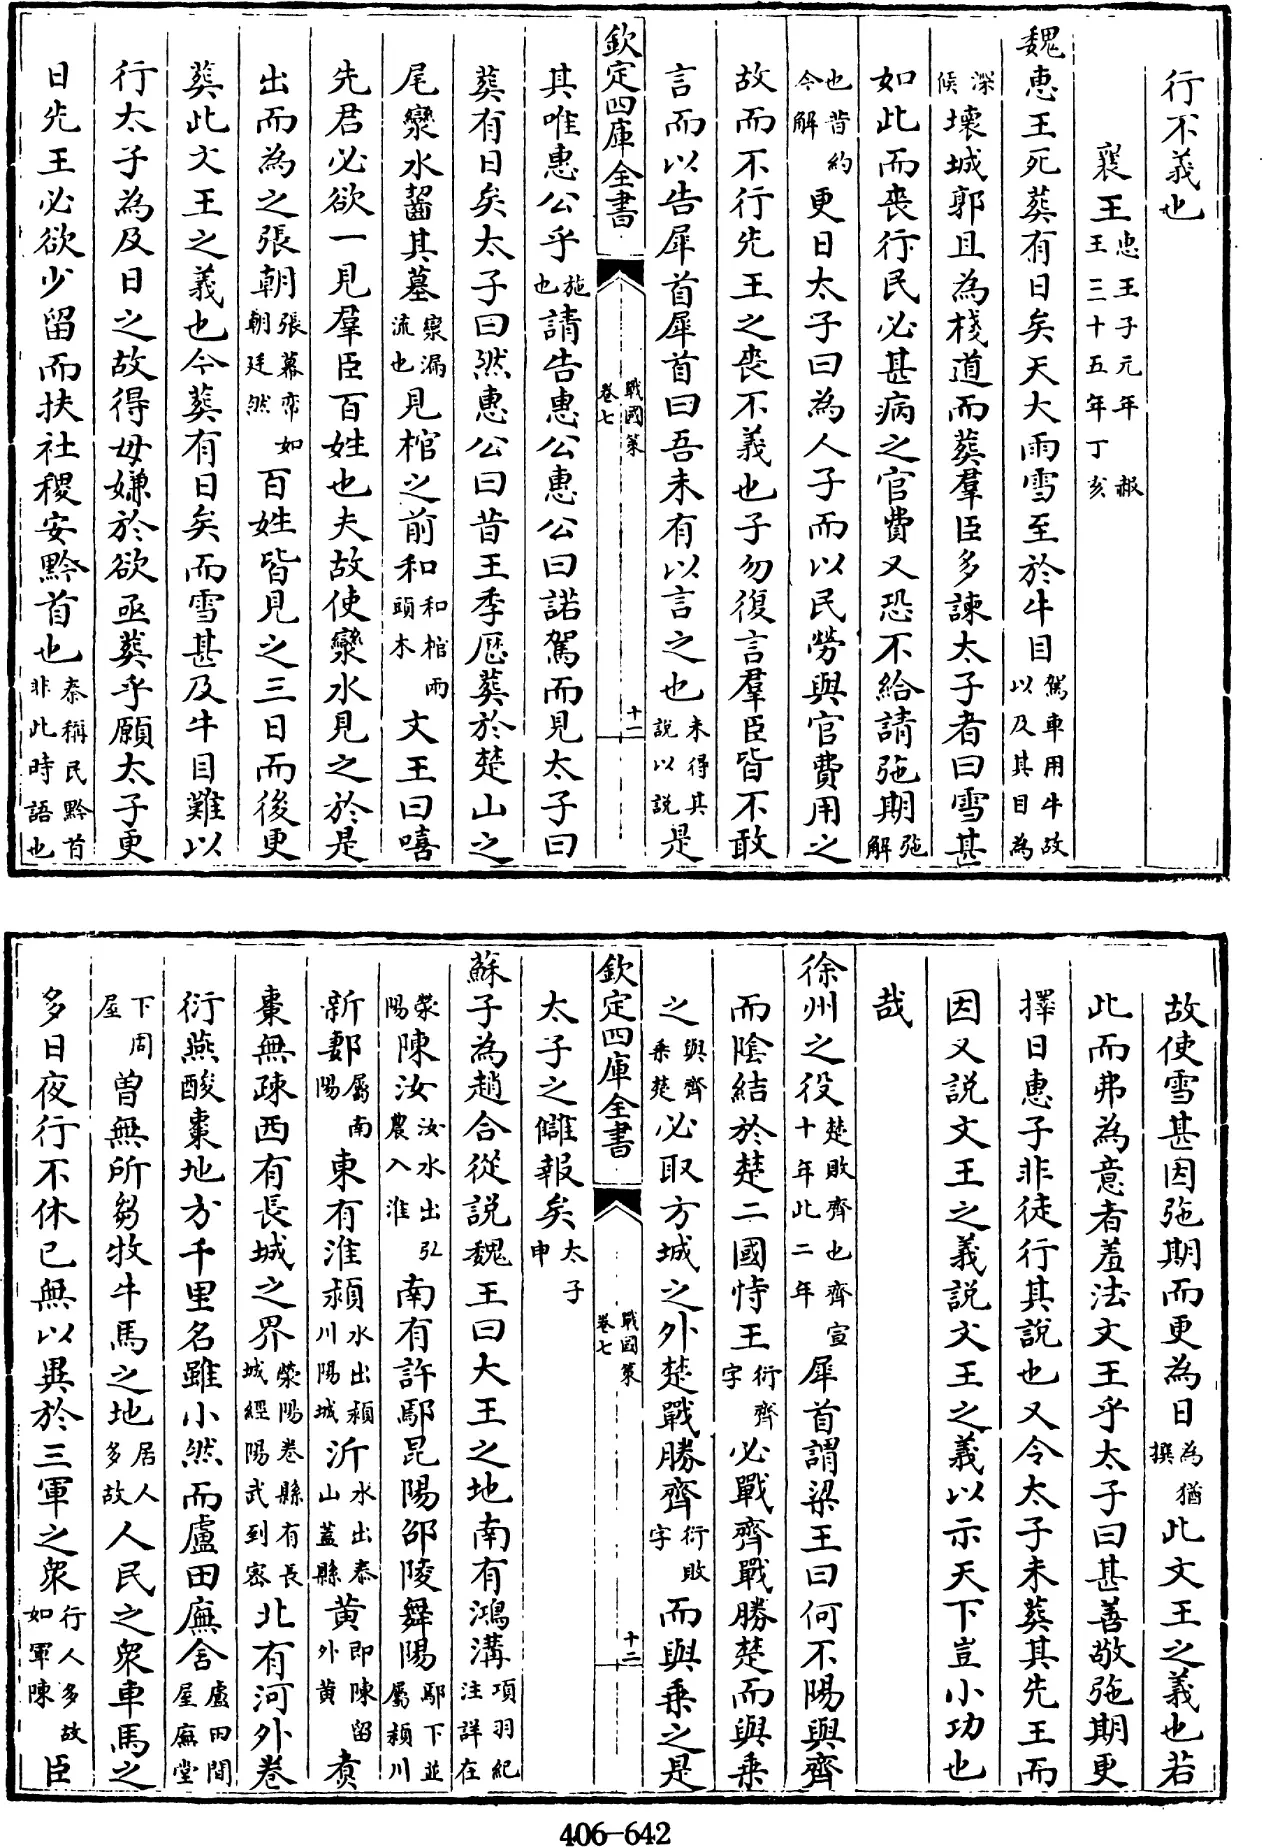 行不義也
襄王惠王子元年赧王三十五年丁亥
魏惠王死葬有日矣天大雨雪至於牛目駕車用牛故以及其目為
深候壞城郭且為棧道而葬羣臣多諫太子者曰雪甚
如此而喪行民必甚病之官費又恐不給請弛期弛解
也昔約今解更日太子曰為人子而以民勞與官費用之
故而不行先王之喪不義也子勿復言羣臣皆不敢
言而以告犀首犀首曰吾未有以言之也未得其說以說是
欽定四庫全書 戰國策卷七 十一
其唯惠公乎施也請告惠公惠公曰諾駕而見太子曰
葬有日矣太子曰然惠公曰昔王季歷葬於楚山之
尾灓水齧其墓灓漏流也見棺之前和和棺兩頭木文王曰嘻
先君必欲一見羣臣百姓也夫故使灓水見之於是
出而為之張朝張幕帟如朝廷然百姓皆見之三日而後更
葬此文王之義也今葬有日矣而雪甚及牛目難以
行太子為及日之故得毋嫌於欲亟葬乎願太子更
日先王必欲少留而扶社稷安黔首也秦稱民黔首非此時語也
故使雪甚因弛期而更為日為猶撰此文王之義也若
此而弗為意者羞法文王乎太子曰甚善敬弛期更
擇日惠子非徒行其說也又令太子未葬其先王而
因又説文王之義説文王之義以示天下豈小功也
哉
徐州之役楚敗齊也齊宣十年此二年犀首謂梁王曰何不陽與齊
而陰結於楚二國恃王衍齊字必戰齊戰勝楚而與乘
之與齊乘楚必取方城之外楚戰勝齊衍敗字而與乘之是
欽定四庫全書 戰國策卷七 十二
太子之讎報矣太子申
蘇子為趙合從説魏王曰大王之地南有鴻溝項羽紀注詳在
滎陽陳汝汝水出弘農入淮南有許鄢昆陽邵陵舞陽鄢下並屬潁川
新郪屬南陽東有淮潁水出潁川陽城沂水出泰山蓋縣黃即陳留外黃煑
棗無疎西有長城之界滎陽卷縣有長城經陽武到密北有河外卷
衍燕酸棗地方千里名雖小然而廬田廡舍廬田間屋廡堂
下周屋曾無所芻牧牛馬之地居人多故人民之衆車馬之
多日夜行不休已無以異於三軍之衆行人多故如軍陳臣
406-642